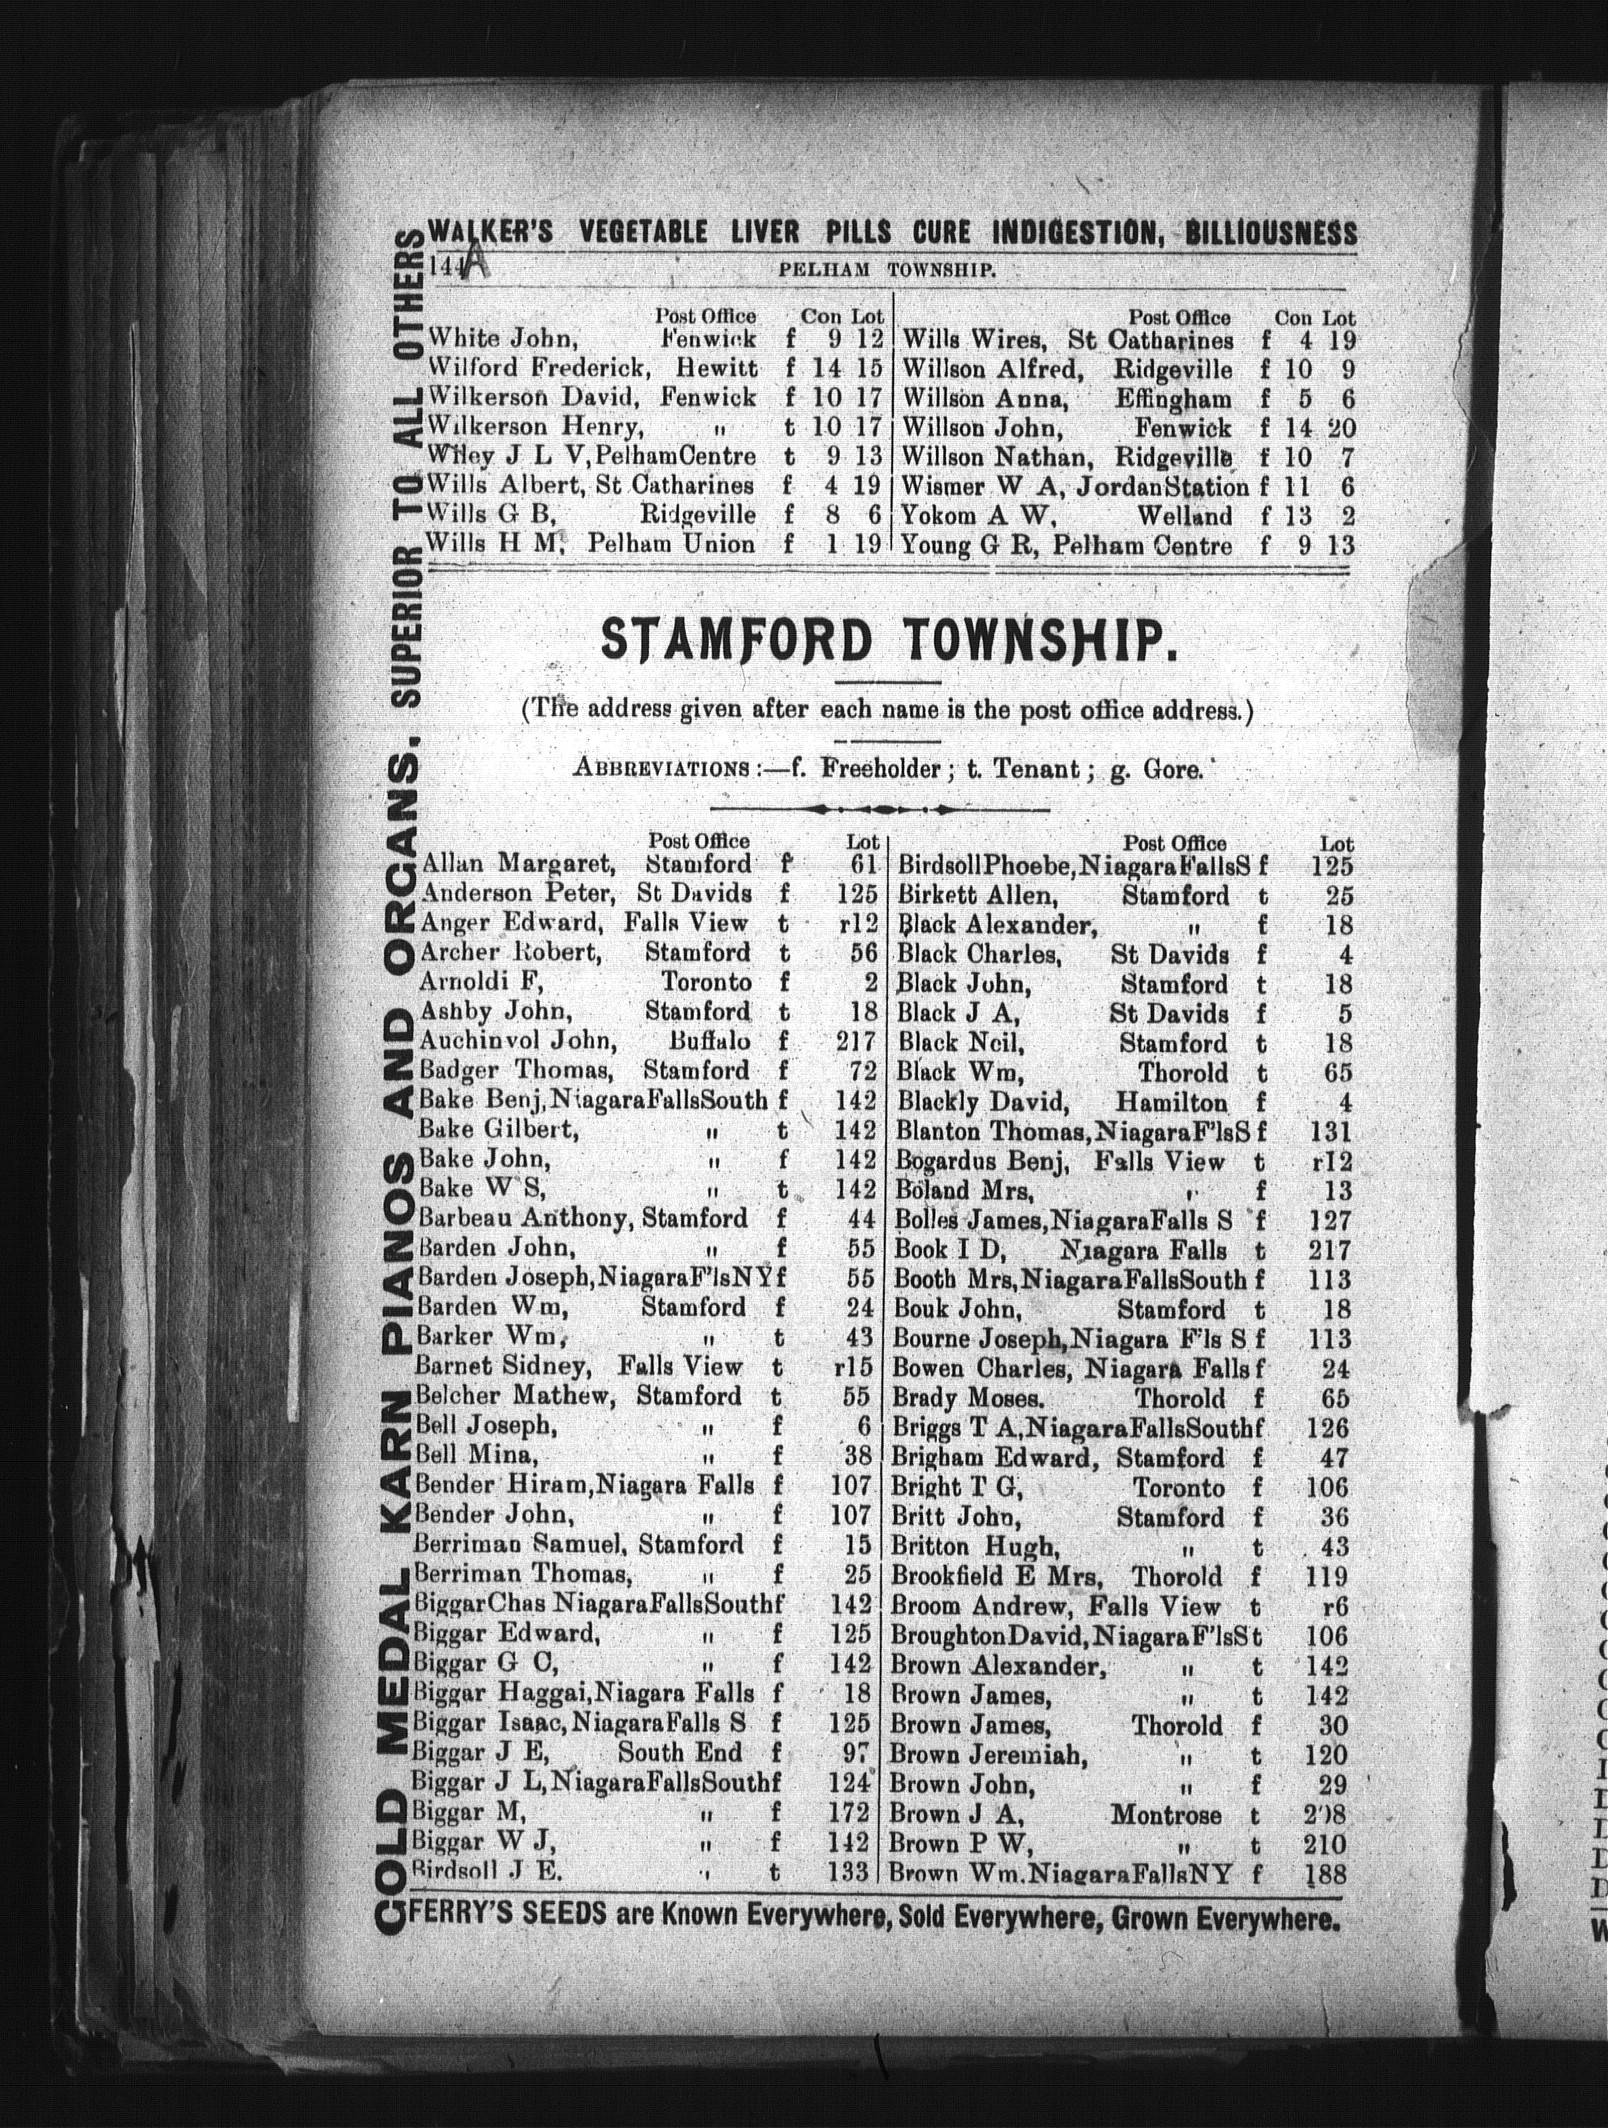 WALKER'S VEGETABLE LIVER PILLS CURE INDIGESTION, BILLIOUSNESS
144A PELHAM TOWNSHIP.
Post Office Con Lot
White John, Fenwick f 9 12
Wilford Frederick, Hewitt f 14 15
Wilkerson David, Fenwick f 10 17
Wilkerson Henry, " t 10 17
Wiley J L V, PelhamCentre t 9 13
Wills Albert, St Catharines f 4 19
Wills G B, Ridgeville f 8 6
Wills H M, Pelham Union f 1 19
Post Office Con Lot
Wills Wires, St Catharines f 4 19
Willson Alfred, Ridgeville f 10 9
Willson Anna, Effingham f 5 6
Willson John, Fenwick f 14 20
Willson Nathan, Ridgeville f 10 7
Wismer W A, JordanStation f 11 6
Yokom A W, Welland f 13 2
Young G R, Pelham Centre f 9 13
STAMFORD TOWNSHIP.
(The address given after each name is the post office address.)
ABBREVIATIONS:—f. Freeholder; t. Tenant; g. Gore.
Post Office Lot
Allan Margaret, Stamford f 61
Anderson Peter, St Davids f 125
Anger Edward, Falls View t r12
Archer Robert, Stamford t 56
Arnoldi F, Toronto f 2
Ashby John, Stamford t 18
Auchinvol John, Buffalo f 217
Badger Thomas, Stamford f 72
Bake Benj, NiagaraFallsSouth f 142
Bake Gilbert, " t 142
Bake John, " f 142
Bake W S, " t 142
Barbeau Anthony, Stamford f 44
Barden John, " f 55
Barden Joseph, NiagaraF'lsNY f 55
Barden Wm, Stamford f 24
Barker Wm, " t 43
Barnet Sidney, Falls View t r15
Belcher Mathew, Stamford t 55
Bell Joseph, " f 6
Bell Mina, " f 38
Bender Hiram, Niagara Falls f 107
Bender John, " f 107
Berriman Samuel, Stamford f 15
Berriman Thomas, " f 25
BiggarChas NiagaraFallsSouthf 142
Biggar Edward, " f 125
Biggar G C, " f 142
Biggar Haggai, Niagara Falls f 18
Biggar Isaac, NiagaraFalls S f 125
Biggar J E, South End f 97
Biggar J L, NiagaraFallsSouthf 124
Biggar M, " f 172
Biggar W J, " f 142
Birdsoll J E. " t 133
Post Office Lot
BirdsollPhoebe, NiagaraFallsS f 125
Birkett Allen, Stamford t 25
Black Alexander, " f 18
Black Charles, St Davids f 4
Black John, Stamford t 18
Black J A, St Davids f 5
Black Neil, Stamford t 18
Black Wm, Thorold t 65
Blackly David, Hamilton f 4
Blanton Thomas, NiagaraF'lsS f 131
Bogardus Benj, Falls View t r12
Boland Mrs, " f 13
Bolles James, NiagaraFalls S f 127
Book I D, Niagara Falls t 217
Booth Mrs, NiagaraFallsSouth f 113
Bouk John, Stamford t 18
Bourne Joseph, Niagara F'ls S f 113
Bowen Charles, Niagara Falls f 24
Brady Moses. Thorold f 65
Briggs T A, NiagaraFallsSouthf 126
Brigham Edward, Stamford f 47
Bright T G, Toronto f 106
Britt John, Stamford f 36
Britton Hugh, " t 43
Brookfield E Mrs, Thorold f 119
Broom Andrew, Falls View t r6
BroughtonDavid, NiagaraF'lsS t 106
Brown Alexander, " t 142
Brown James, " t 142
Brown James, Thorold f 30
Brown Jeremiah, " t 120
Brown John, " f 29
Brown J A, Montrose t 208
Brown P W, " t 210
Brown Wm. NiagaraFallsNY f 188
FERRY'S SEEDS are Known Everywhere, Sold Everywhere, Grown Everywhere.
GOLD MEDAL KARN PIANOS AND ORGANS. SUPERIOR TO ALL OTHERS